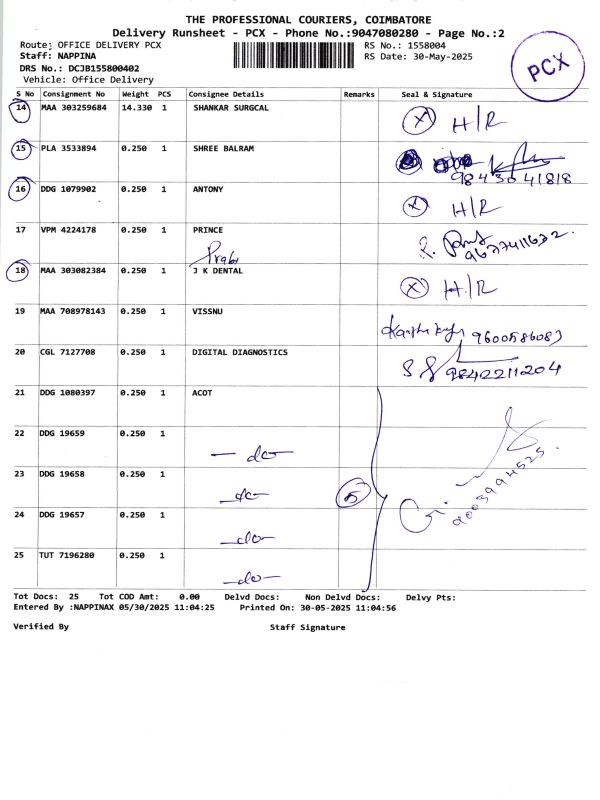 THE PROFESSIONAL COURIERS, COIMBATORE
Delivery Runsheet - PCX - Phone No.:9047080280 - Page No.:2
Route: OFFICE DELIVERY PCX RS No.: 1558004
Staff: NAPPINA RS Date: 30-May-2025
DRS No.: DCJB155800402
Vehicle: Office Delivery
PCX
S No Consignment No Weight PCS Consignee Details Remarks Seal & Signature
14 MAA 303259684 14.330 1 SHANKAR SURGCAL X H/R
15 PLA 3533894 0.250 1 SHREE BALRAM
9843041818
16 DDG 1079902 0.250 1 ANTONY X H/R
17 VPM 4224178 0.250 1 PRINCE
Prabi
18 MAA 303082384 0.250 1 J K DENTAL X H/R
19 MAA 708978143 0.250 1 VISSNU
9600586083
20 CGL 7127708 0.250 1 DIGITAL DIAGNOSTICS
9842211204
21 DDG 1080397 0.250 1 ACOT
22 DDG 19659 0.250 1
— do —
23 DDG 19658 0.250 1
— do — 5
9003994525
24 DDG 19657 0.250 1
— do —
25 TUT 7196280 0.250 1
— do —
Tot Docs: 25 Tot COD Amt: 0.00 Delvd Docs: Non Delvd Docs: Delvy Pts:
Entered By :NAPPINAX 05/30/2025 11:04:25 Printed On: 30-05-2025 11:04:56
Verified By Staff Signature